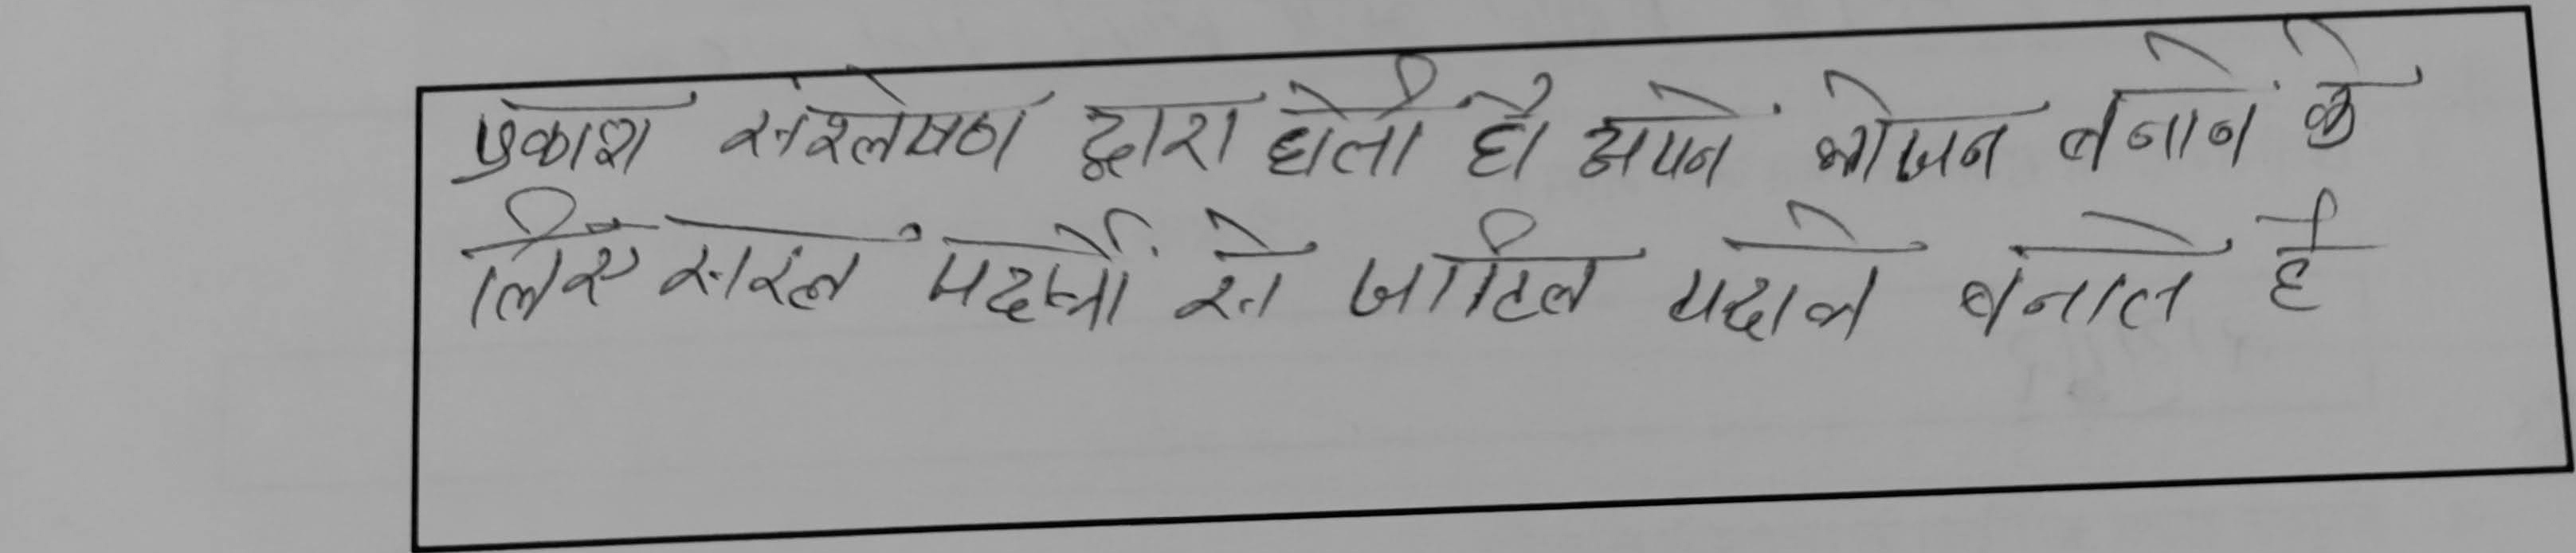 प्रकाश संश्लेषण द्वारा होती है अपने भोजन बनाने के
लिए सरल पदार्थो से जटिल पदार्थ बनाते है